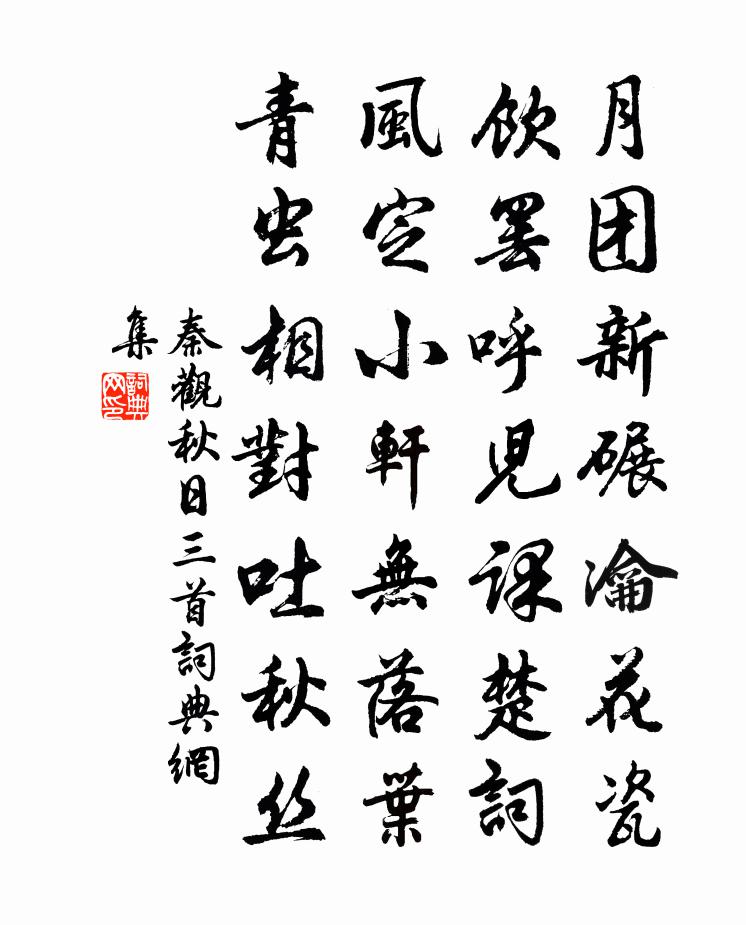 月团新碾瀹花瓷
飲罢呼児課楚詞
風定小軒無落葉
青虫相對吐秋丝
秦觀秋日三首詞典網
集
詞典
网印